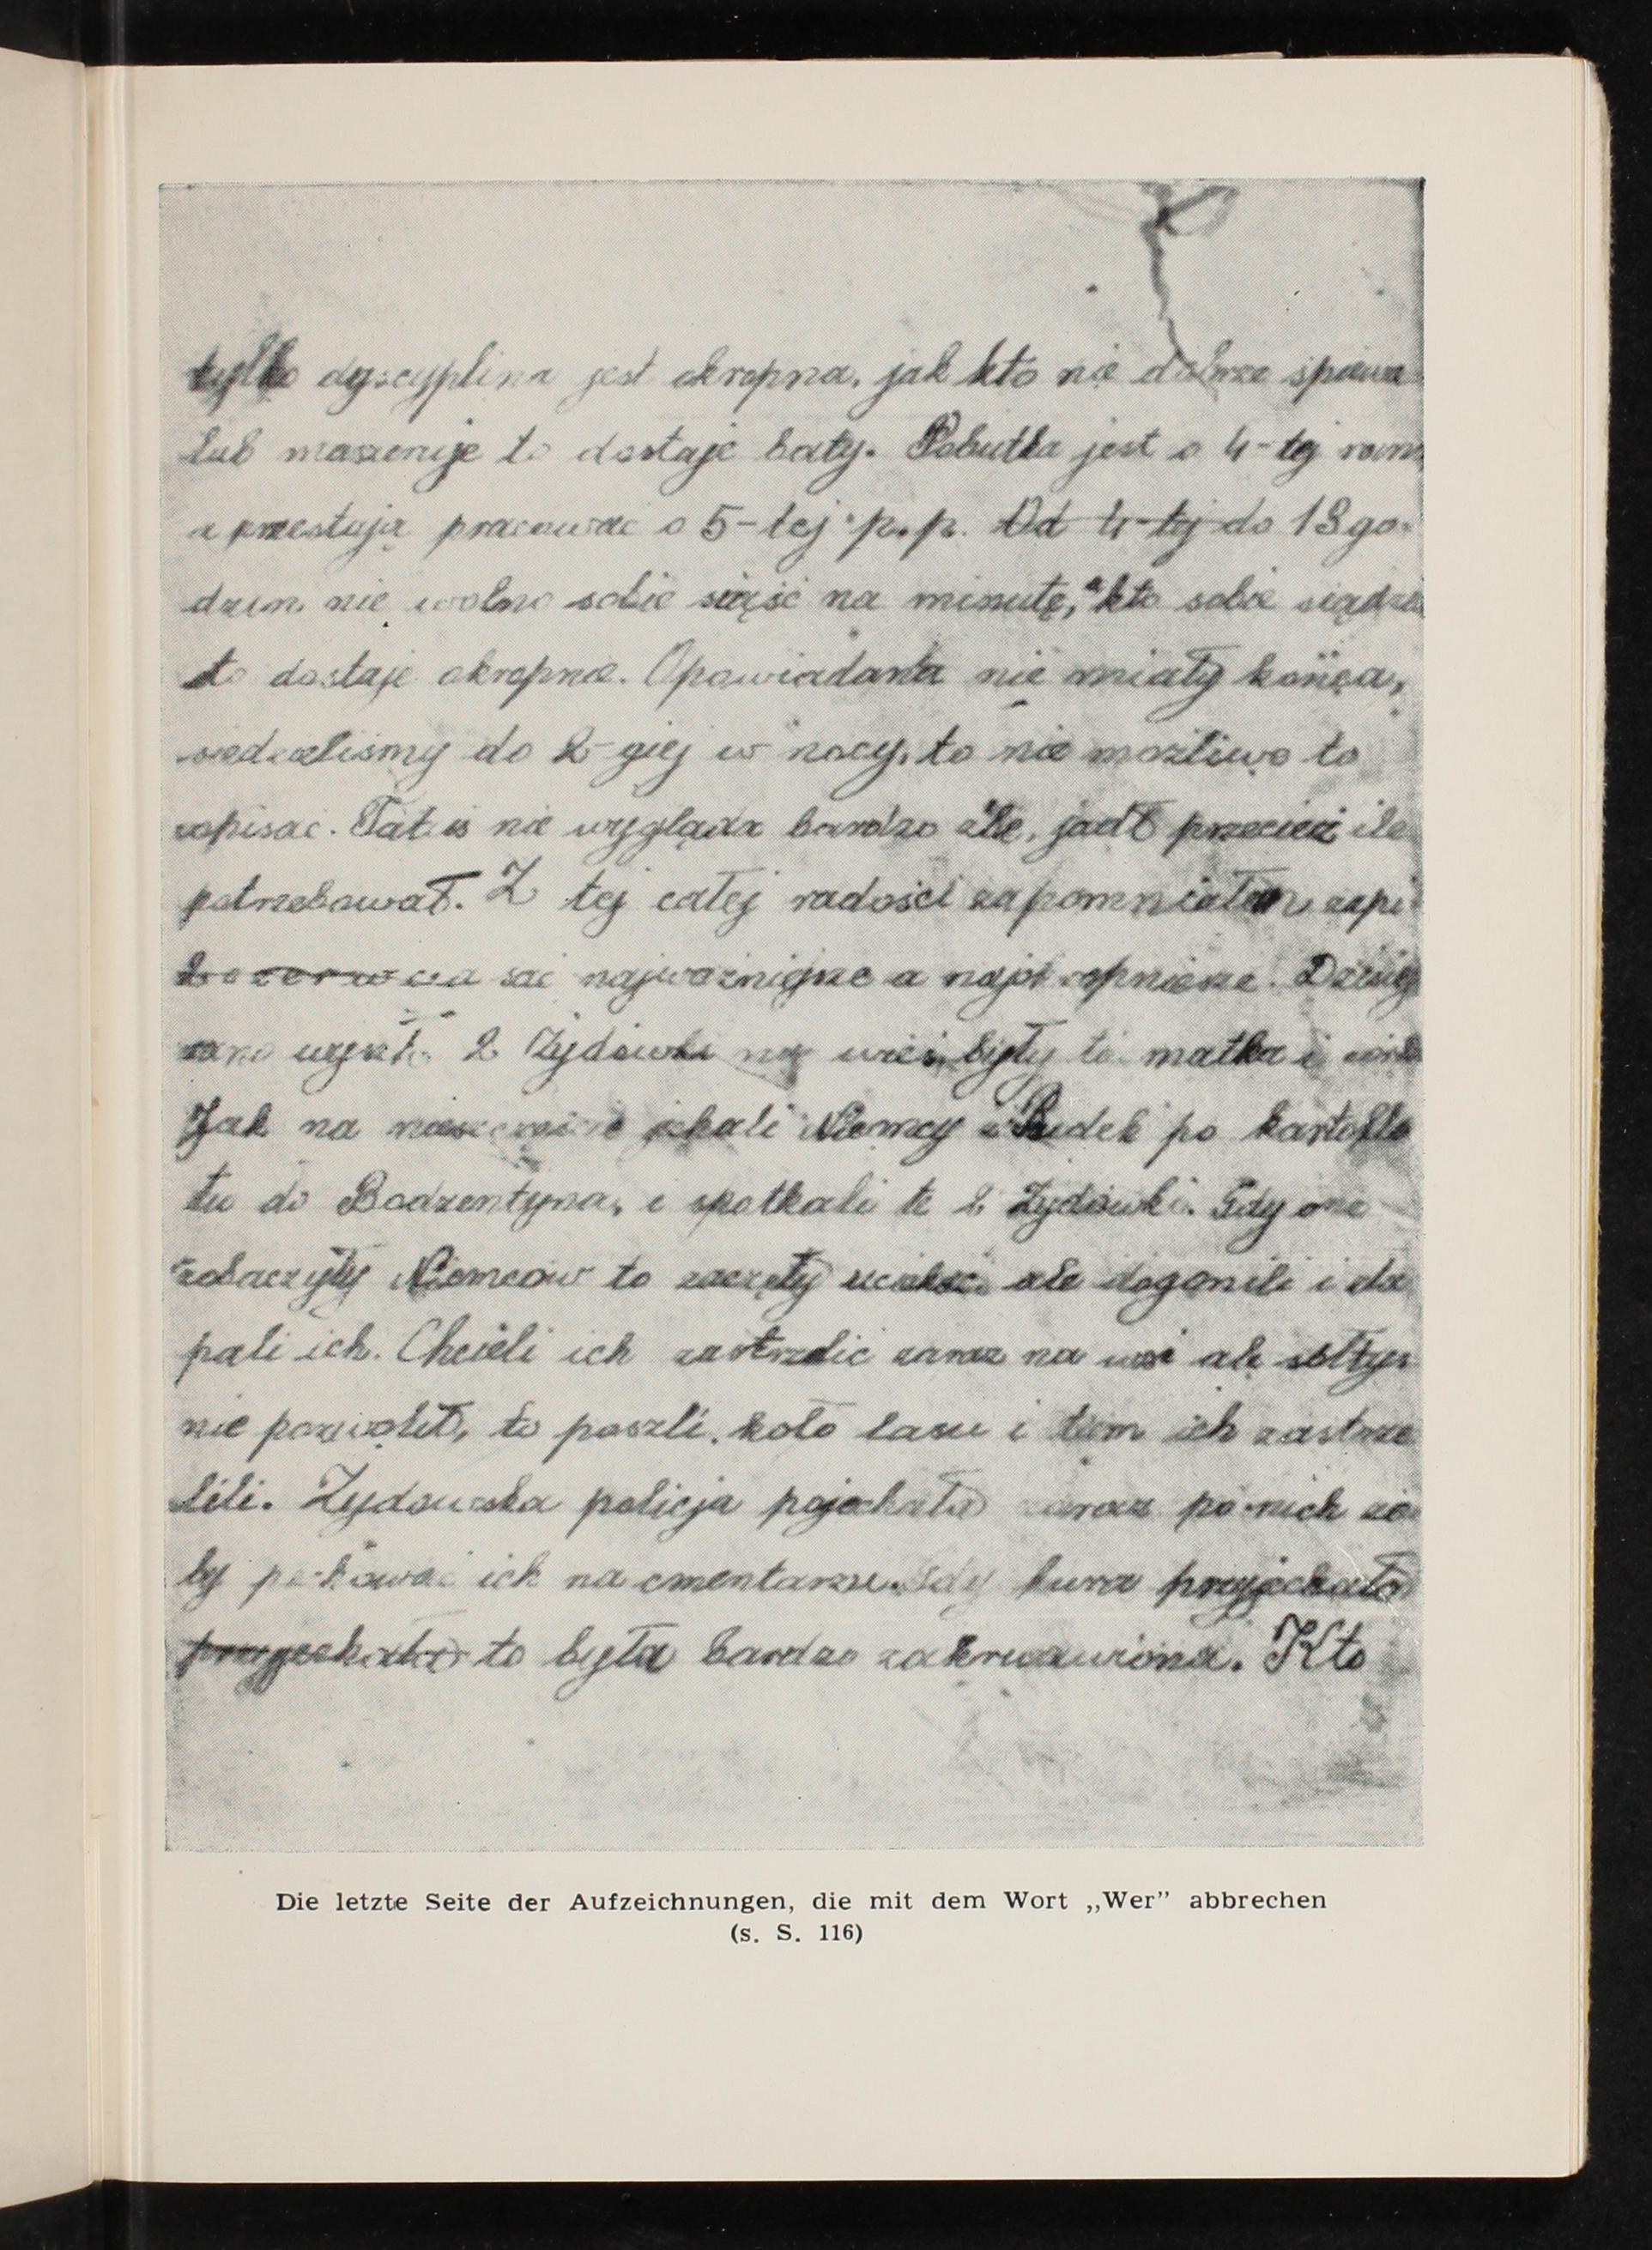 tylko dyscyplina jest okropna, jak kto nie dobrze śpiewa
lub maszeruje to dostaje baty. Pobutka jest o 4-tej rano
a przestają pracować o 5-tej p.p. Od 4-tej do 18 go-
dzin nie wolno sobie siąść na minutę, a kto sobie siądzie
to dostaje okropnie. Opowiadania nie miały końca,
siedzieliśmy do 2-giej w nocy, to nie możliwo to
opisać. Tatuś nie wygląda bardzo źle, jadł przecież ile
potrzebował. Z tej całej radości zapomniałem zapi
sać najważniejsze a najokropniejsze. Dzisiaj
rano wyszło 2 Żydówki na wieś były to matka i
Jak na nieszczęście jechali Niemcy z Rudek po kartofle
tu do Bodzentyna, i spotkali te 2 Żydówki. Gdy one
zobaczyły Niemców to zaczęły uciekać ale dogonili i zła
pali ich. Chcieli ich zastrzelić zaraz na wsi ale sołtys
nie pozwolił, to poszli koło lasu i tam ich zastrze
lili. Żydowska policja pojechała zaraz po nich że
by pochować ich na cmentarzu. Gdy fura przyjechała
przyjechała to była bardzo zakrwawiona. Kto
Die letzte Seite der Aufzeichnungen, die mit dem Wort „Wer” abbrechen
(s. S. 116)